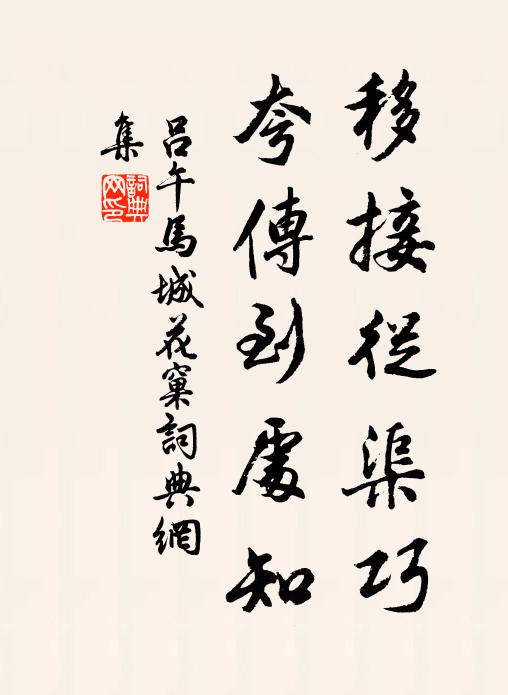 移接從渠巧
夸傳到處知
呂午馬城花窠詞典網
集
詞典
网印